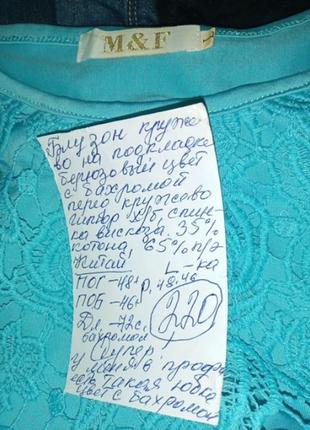 M&F
L
Блузон круже
во на подкладке
берюзовый цвет
с бахромой
перед кружево
гипюр х/б, спин-
ка вискоза. 35%
котона, 65% п/э
Китай, L-ка
ПОГ-48+ р. 48.46
ПОБ-46+ 220
Дл.-72с.
бахромой
Супер
у меня в профи
есть такая юбка
цвет с бахромой